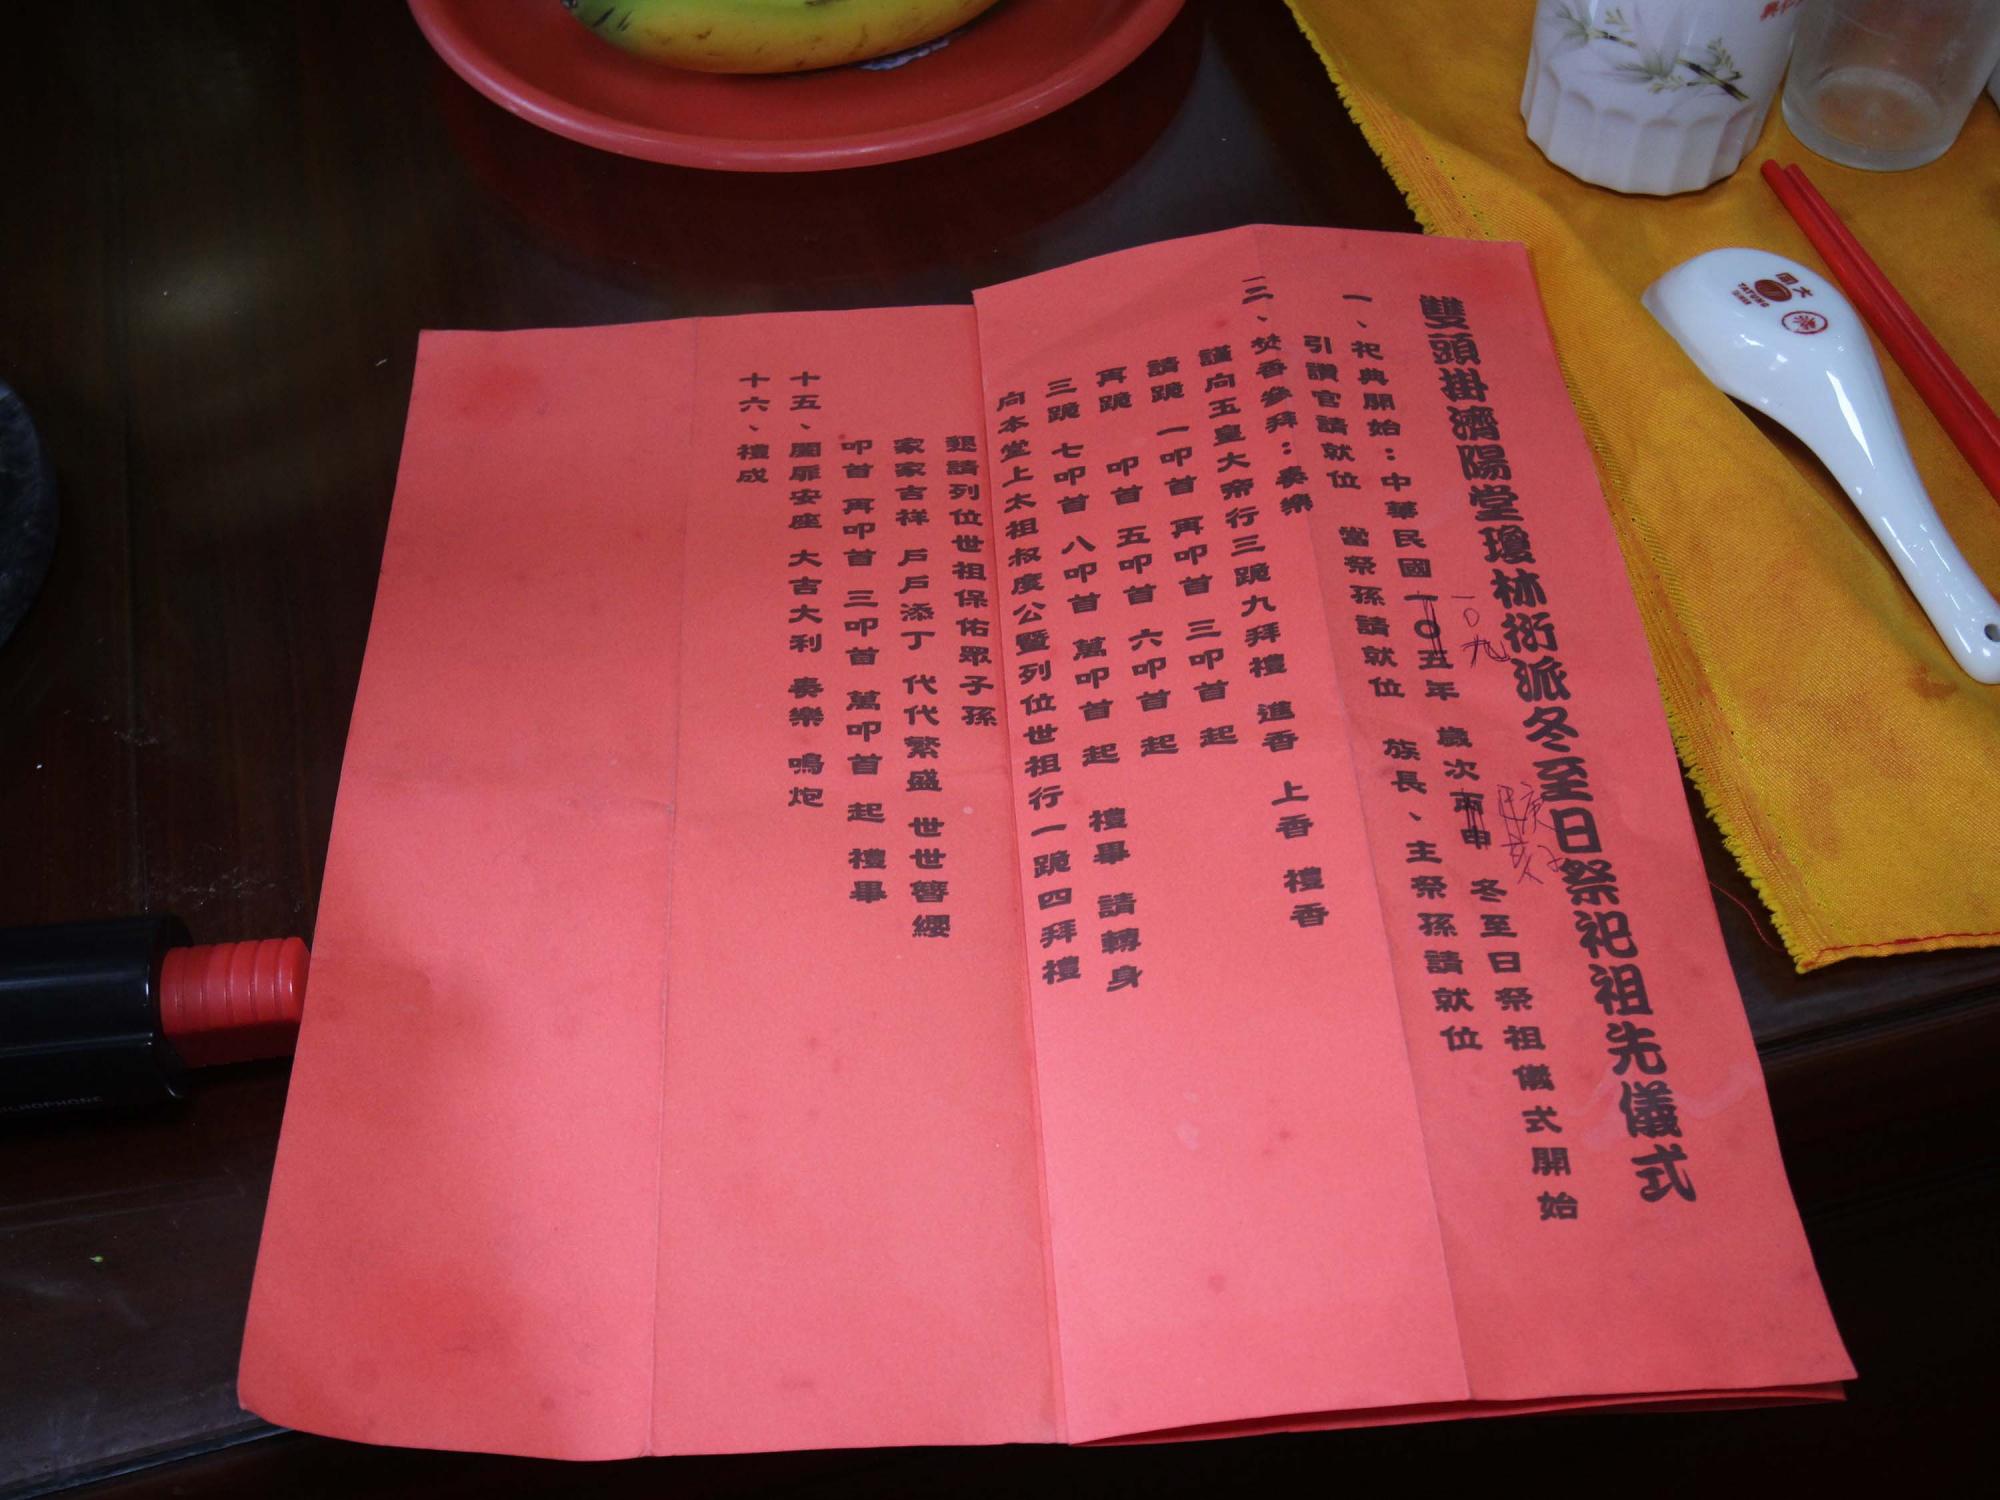 雙頭掛濟陽堂瓊林衍派冬至日祭祀祖先儀式
一、祀典開始：中華民國一〇五年 歲次丙申 冬至日祭祖儀式開始
一〇九
庚子
引讚官請就位 當祭孫請就位 族長、主祭孫請就位
二、焚香參拜：奏樂
謹向五皇大帝行三跪九拜禮 進香 上香 禮香
請跪 一叩首 再叩首 三叩首 起
再跪 叩首 五叩首 六叩首 起
三跪 七叩首 八叩首 萬叩首 起 禮畢 請轉身
向本堂上太祖叔度公暨列位世祖行一跪四拜禮
懇請列位世祖保佑眾子孫
家家吉祥 戶戶添丁 代代繁盛 世世簪纓
叩首 再叩首 三叩首 萬叩首 起 禮畢
十五、闔扉安座 大吉大利 奏樂 鳴炮
十六、禮成
大同
TATUNG